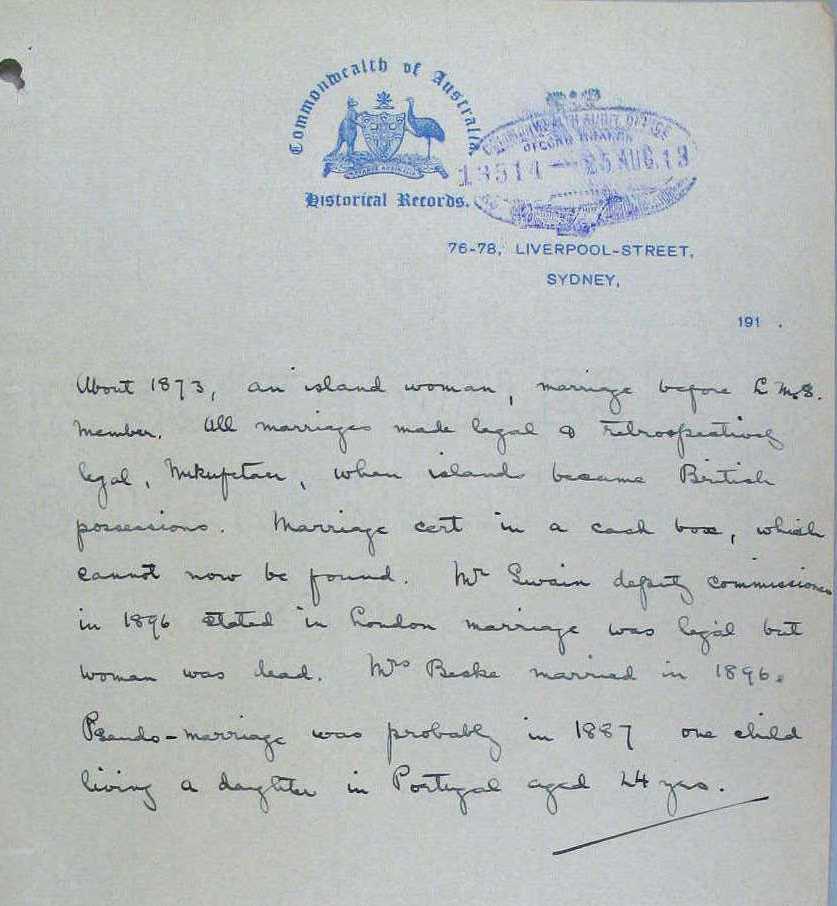 Commonwealth of Australia
Historical Records.
COMMONWEALTH AUDIT OFFICE
13514 — 25 AUG. 13
76-78, LIVERPOOL-STREET,
SYDNEY,
191 .
About 1873, an island woman, marriage before L.M.S.
Member. All marriages made legal & retrospectively
legal, , when islands became British
possessions. Marriage cert in a cash box, which
cannot now be found. Mr Swain deputy commissioner
in 1896 stated in London marriage was legal but
woman was dead. Mrs Beske married in 1896.
Pseudo-marriage was probably in 1887 one child
living a daughter in Portugal aged 24 yrs.